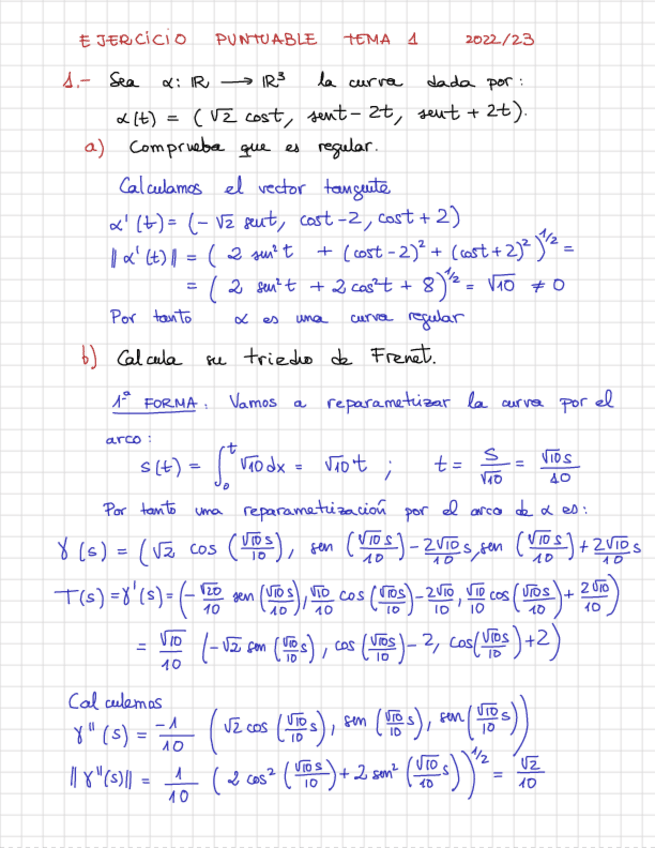 EJERCICIO PUNTUABLE TEMA 1 2022/23
1.- Sea α: ℝ → ℝ³ la curva dada por:
α(t) = (√2 cost, sent - 2t, sent + 2t).
a) Comprueba que es regular.
Calculamos el vector tangente
α'(t) = (-√2 sent, cost - 2, cost + 2)
‖α'(t)‖ = (2 sen²t + (cost - 2)² + (cost + 2)²)^1/2 =
= (2 sen²t + 2 cos²t + 8)^1/2 = √10 ≠ 0
Por tanto α es una curva regular
b) Calcula su triedro de Frenet.
1ª FORMA: Vamos a reparametrizar la curva por el
arco:
s(t) = ∫₀ᵗ √10 dx = √10 t ; t = s/√10 = √10 s/10
Por tanto una reparametrización por el arco de α es:
γ(s) = (√2 cos (√10 s/10), sen (√10 s/10) - 2√10/10 s, sen (√10 s/10) + 2√10/10 s
T(s) = γ'(s) = (-√20/10 sen (√10 s/10), √10/10 cos (√10 s/10) - 2√10/10, √10/10 cos (√10 s/10) + 2√10/10)
= √10/10 (-√2 sen (√10/10 s), cos (√10 s/10) - 2, cos (√10 s/10) + 2)
Calculemos
γ''(s) = -1/10 (√2 cos (√10/10 s), sen (√10/10 s), sen (√10/10 s))
‖γ''(s)‖ = 1/10 (2 cos² (√10 s/10) + 2 sen² (√10/10 s))^1/2 = √2/10